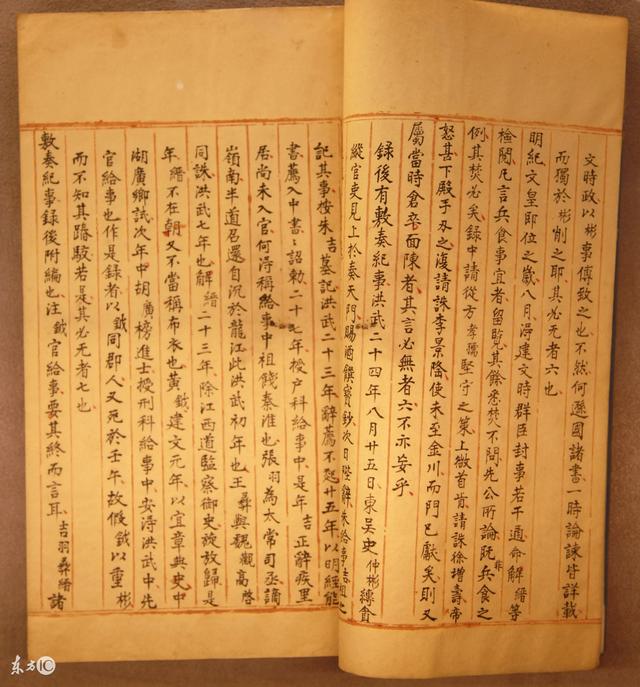 文時政以彬事傅致之也不然何遜國諸書一時論諫皆詳載
而獨於彬削之耶其必无者六也
明紀文皇即位之歲八月淂建文時群臣封事若干通命解縉等
檢閱凡言兵食事宜者留覧其餘悉焚不問先公所論既非兵食之
例其焚必矣錄中請從方孝孺堅守之策上微首肯請誅徐增壽帝
怒甚下殿手刃之復請誅李景隆使未至金川而門已矣則又
屬當時倉卒面陳者其言必無者六不亦妄乎
錄後有敷奏紀事洪武二十四年八月廿五日東吳史仲彬縛貪
縱官吏見上於奏天門賜酒饌寳鈔次日陛辭朱給事吉祖之
記其事按朱吉墓記洪武二十三年辭薦不起廿五年以明經能
書薦入中書〻詔勅二十七年授戶科給事中是年吉正辭疾里
居尚未入官何淂稱給事中祖餞秦淮也張羽為太常司丞謫
嶺南半道召還自沉於龍江此洪武初年也王彞與魏觀高啓
同誅洪武七年也解縉二十三年除江西道監察御史旋放歸是
年縉不在朝又不當稱布衣也黃鉞建文元年以宜章典史中
湖廣鄉試次年中胡廣榜進士授刑科給事中安淂洪武中先
官給事也作是錄者以鉞同郡人又死於壬年故假鉞以重彬
而不知其踳駁若是其必无者七也
敷奏紀事録後附編也注鉞官給事要其終而言耳吉羽彞縉諸
东方IC